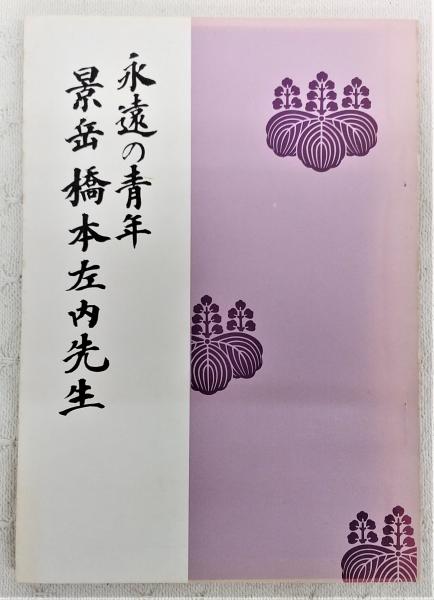 永遠の青年
景岳橋本左内先生